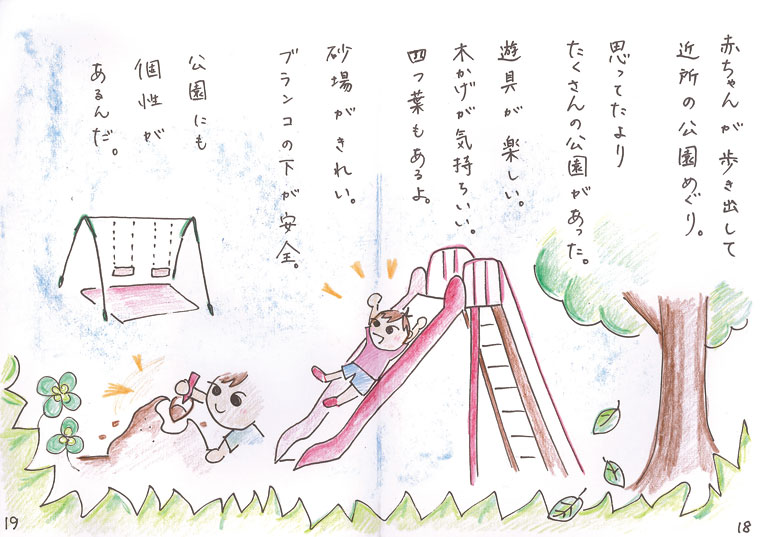 赤ちゃんが歩き出して
近所の公園めぐり。
思ってたより
たくさんの公園があった。
遊具が楽しい。
木かげが気持ちいい。
四つ葉もあるよ。
砂場がきれい。
ブランコの下が安全。
公園にも
個性が
あるんだ。
18
19